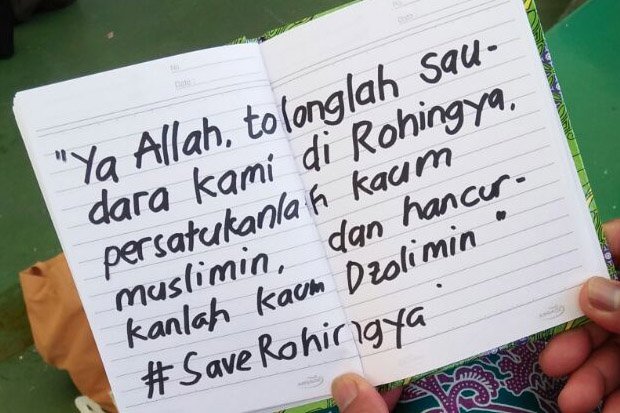 No
Date :
No :
Date :
"Ya Allah, tolonglah sau-
dara kami di Rohingya,
persatukanlah kaum
muslimin, dan hancur-
kanlah kaum Dzolimin"
#SaveRohingya